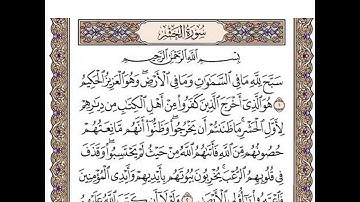 سورة الحشر
بسم الله الرحمن الرحيم
سَبَّحَ لِلَّهِ مَا فِي السَّمَاوَاتِ وَمَا فِي الْأَرْضِ وَهُوَ الْعَزِيزُ الْحَكِيمُ
١ هُوَ الَّذِي أَخْرَجَ الَّذِينَ كَفَرُوا مِنْ أَهْلِ الْكِتَابِ مِن دِيَارِهِمْ
لِأَوَّلِ الْحَشْرِ مَا ظَنَنتُمْ أَن يَخْرُجُوا وَظَنُّوا أَنَّهُم مَّانِعَتُهُمْ
حُصُونُهُم مِّنَ اللَّهِ فَأَتَاهُمُ اللَّهُ مِنْ حَيْثُ لَمْ يَحْتَسِبُوا وَقَذَفَ
فِي قُلُوبِهِمُ الرُّعْبَ يُخْرِبُونَ بُيُوتَهُم بِأَيْدِيهِمْ وَأَيْدِي الْمُؤْمِنِينَ
فَاعْتَبِرُوا يَا أُولِي الْأَبْصَارِ ٢ وَلَوْلَا أَن كَتَبَ اللَّهُ عَلَيْهِمُ